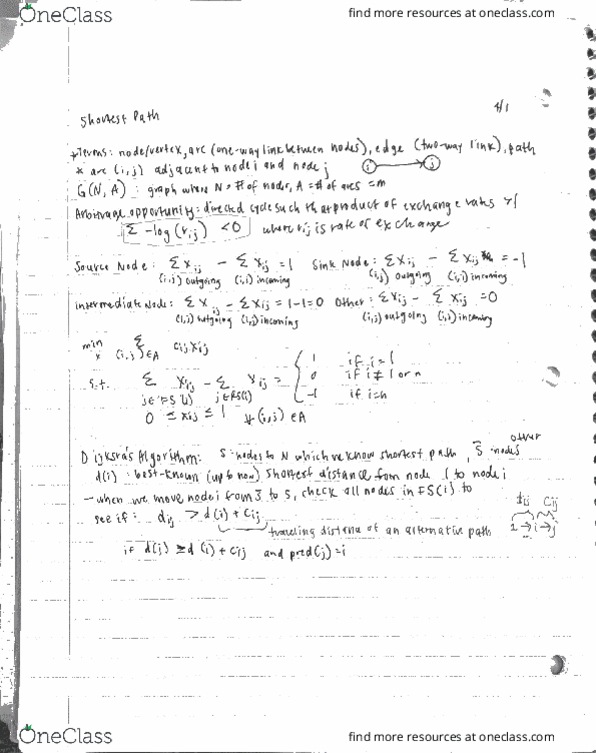 OneClass
find more resources at oneclass.com
4/1
Shortest Path
*Terms: node/vertex, arc (one-way link between nodes), edge (two-way link), path
* arc (i,j) adjacent to node i and node j  i → j
G(N, A) : graph where N = # of nodes, A = # of arcs = m
Arbitrage opportunity: directed cycle such that product of exchange rates >1
Σ -log(rij) < 0 where rij is rate of exchange
Source Node: Σ Xij - Σ Xij = 1 Sink Node: Σ Xij - Σ Xij = -1
(i,j) outgoing (i,j) incoming (i,j) outgoing (i,j) incoming
Intermediate Node: Σ Xij - Σ Xij = 1-1=0 Other: Σ Xij - Σ Xij = 0
(i,j) outgoing (i,j) incoming (i,j) outgoing (i,j) incoming
min x Σ (i,j)∈A cijxij
s.t. Σ j∈FS(i) Xij - Σ j∈RS(i) Xij = { 1 if i=1
0 if i≠1 or n
-1 if i=n
0 ≤ xij ≤ 1 ∀ (i,j) ∈ A
Dijksra's Algorithm: S nodes to N which we know shortest path, S̄ other nodes
d(i) : best-known (up to now) shortest distance from node 1 to node i
- when we move node i from S̄ to S, check all nodes in FS(i) to
see if: dij > d(i) + Cij
traveling distance of an alternative path
Cij
1 → i → j
if d(j) ≥ d(i) + cij and pred(j) = i
OneClass
find more resources at oneclass.com